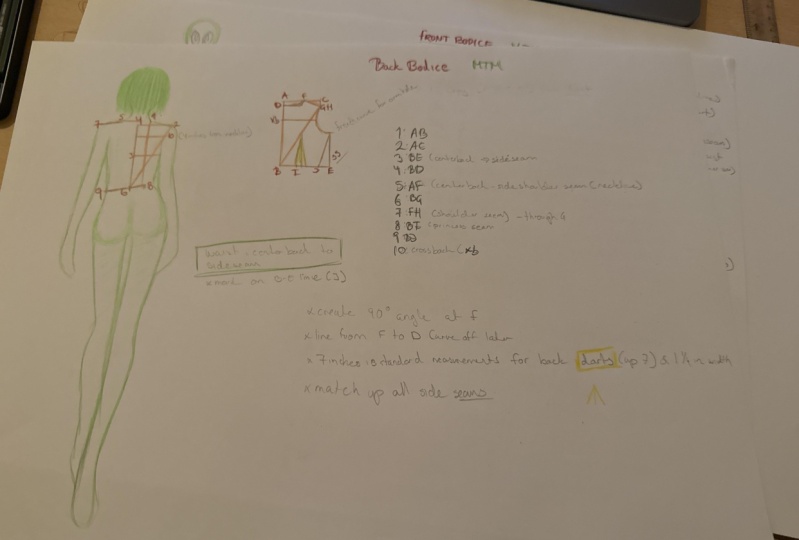 FRONT BODICE
Back Bodice MTM
A F C
D GH
B I J E
1: AB
2: AC
3: BE (centerback → sideseam
4: BD
5: AF (centerback - side shoulder seam (neckline)
6: BG
7: FH (shoulder seam) - through G
8: BI
9: BJ
10: crossback (xb
waist - centerback to
sideseam
x mark on B-E line (3)
x create 90° angle at f
x line from F to D curve off later
x 7 inches is standard measurements for back darts (up 7) & 1 1/4 in width
x match up all side seams